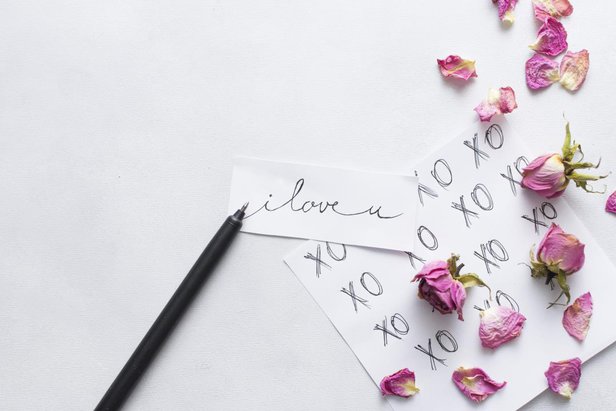 i love u
XO
XO
XO
XO
XO
XO
XO
XO
XO
XO
XO
XO
XO